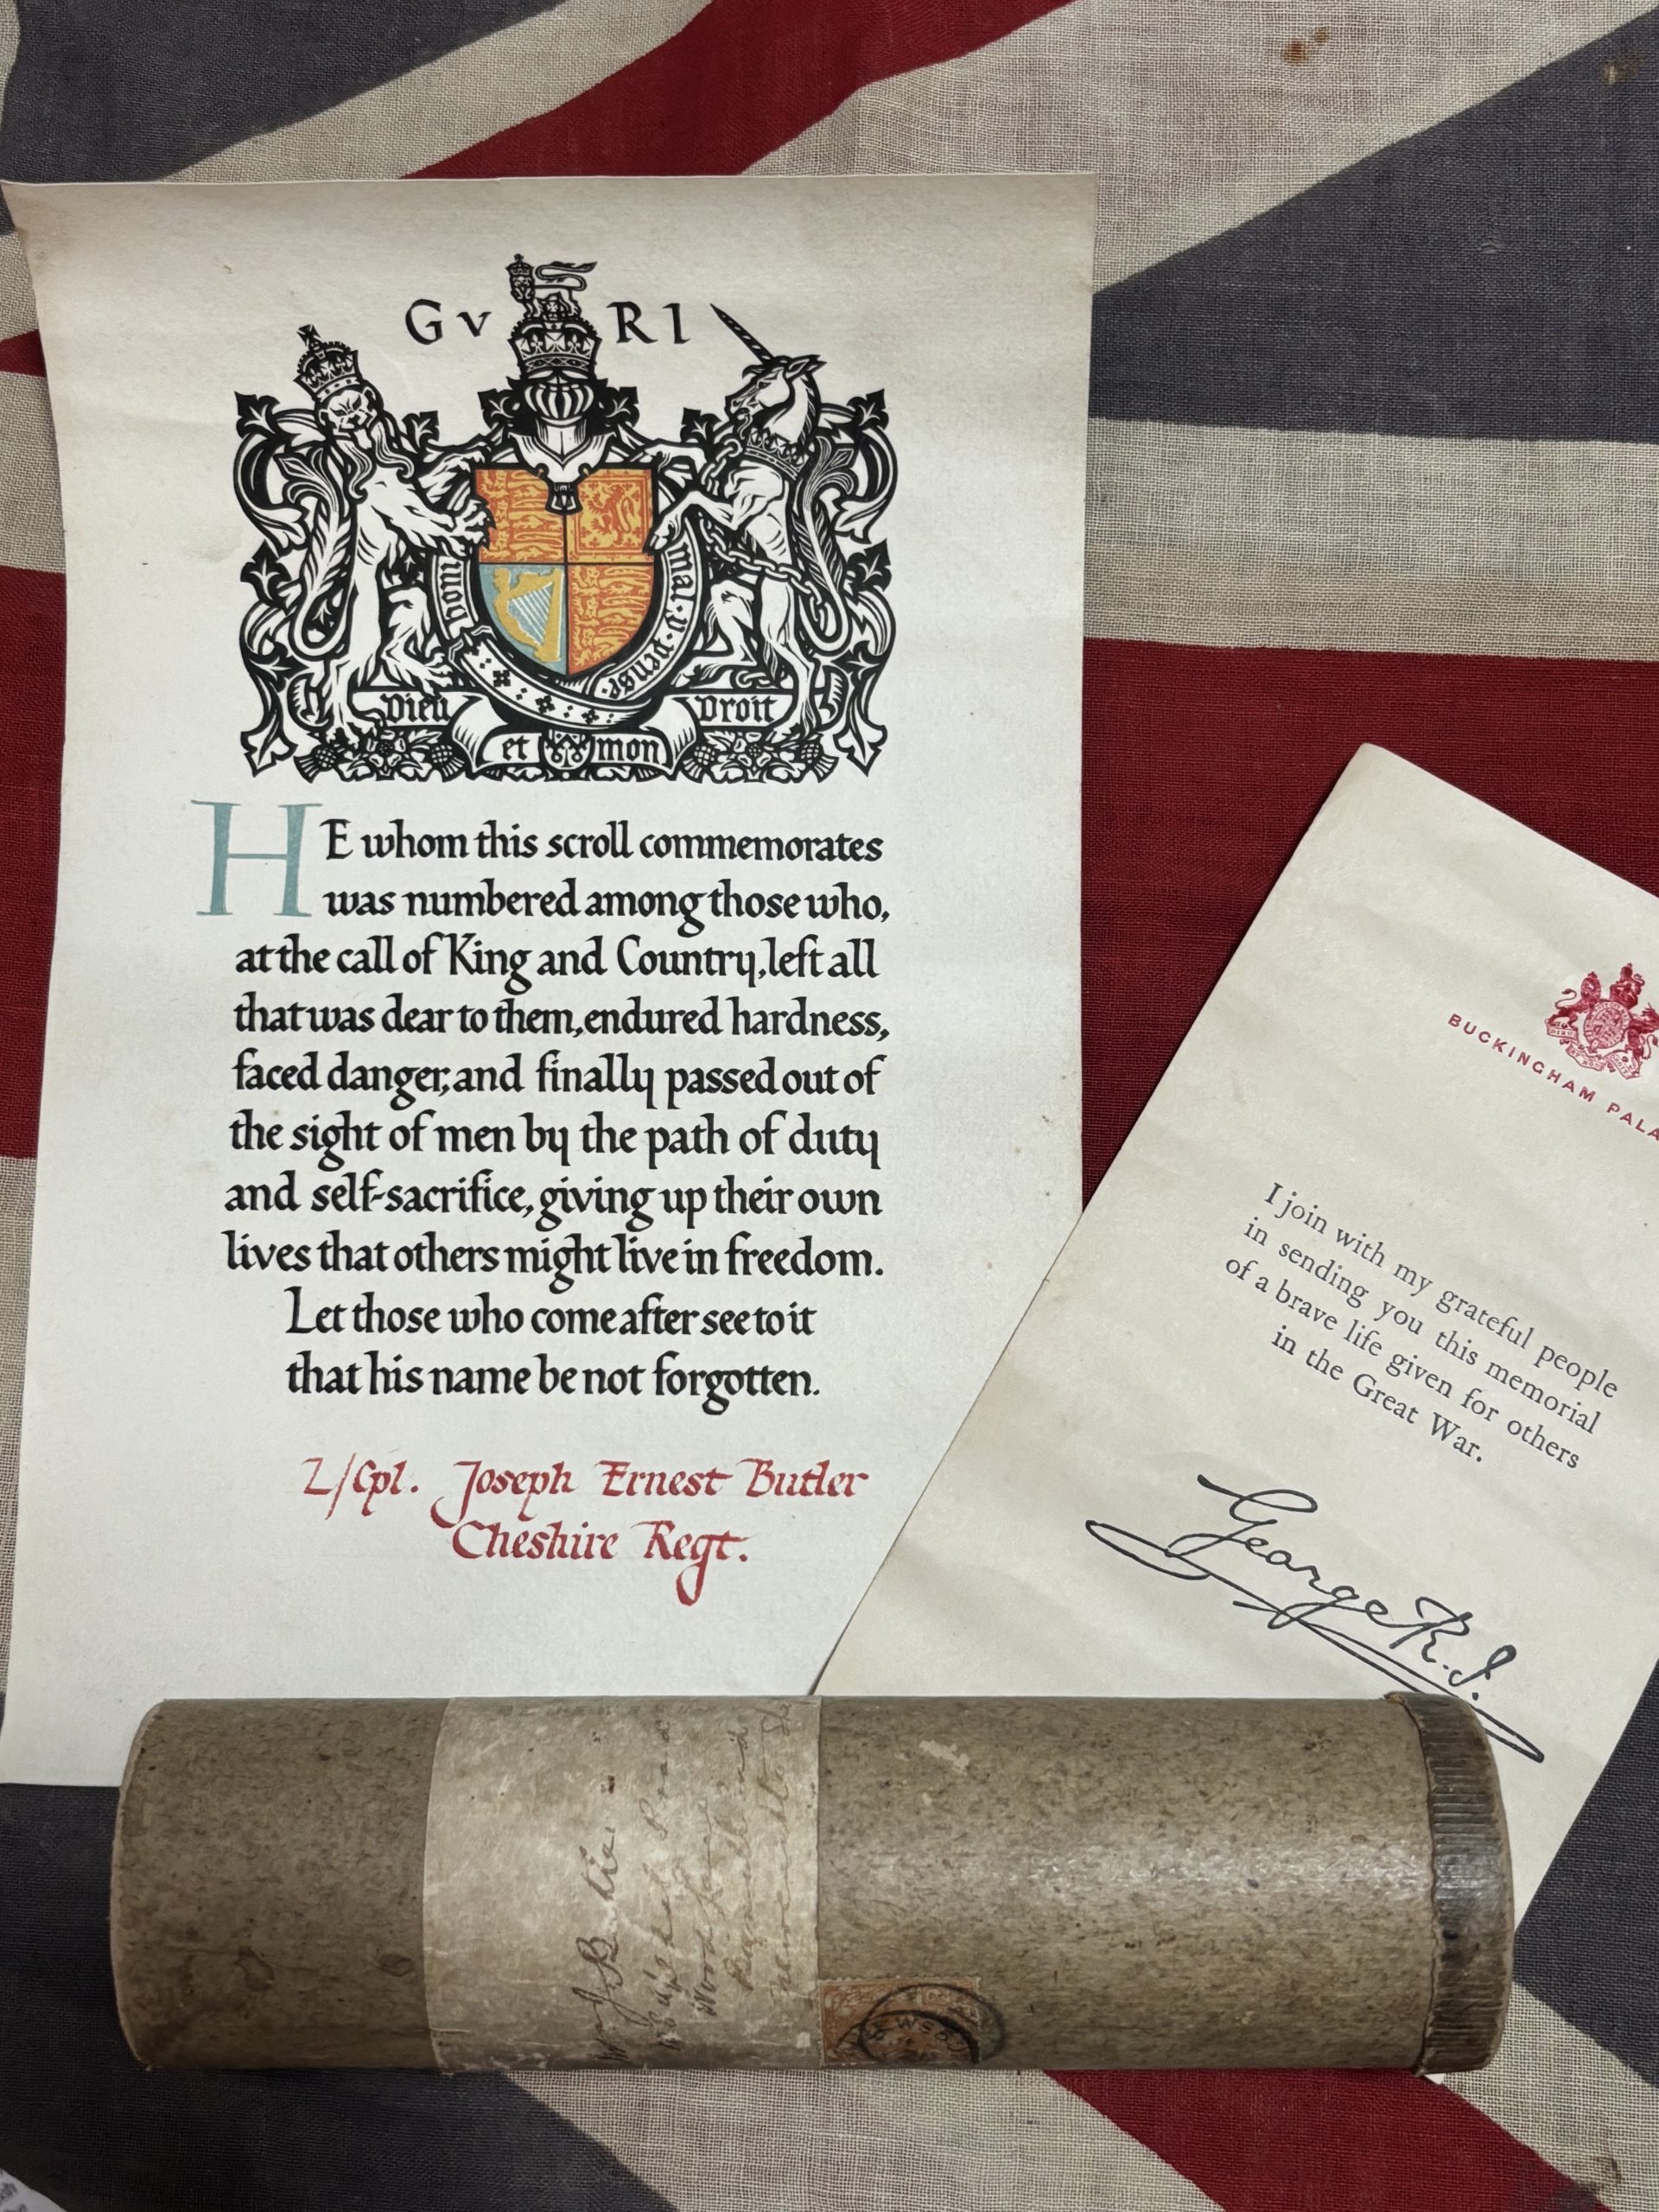 G V R I
mal · y · pense
Dieu et mon Droit
HE whom this scroll commemorates
was numbered among those who,
at the call of King and Country, left all
that was dear to them, endured hardness,
faced danger, and finally passed out of
the sight of men by the path of duty
and self-sacrifice, giving up their own
lives that others might live in freedom.
Let those who come after see to it
that his name be not forgotten.
L/Cpl. Joseph Ernest Butler
Cheshire Regt.
BUCKINGHAM
I join with my grateful people
in sending you this memorial
of a brave life given for others
in the Great War.
George R.I.